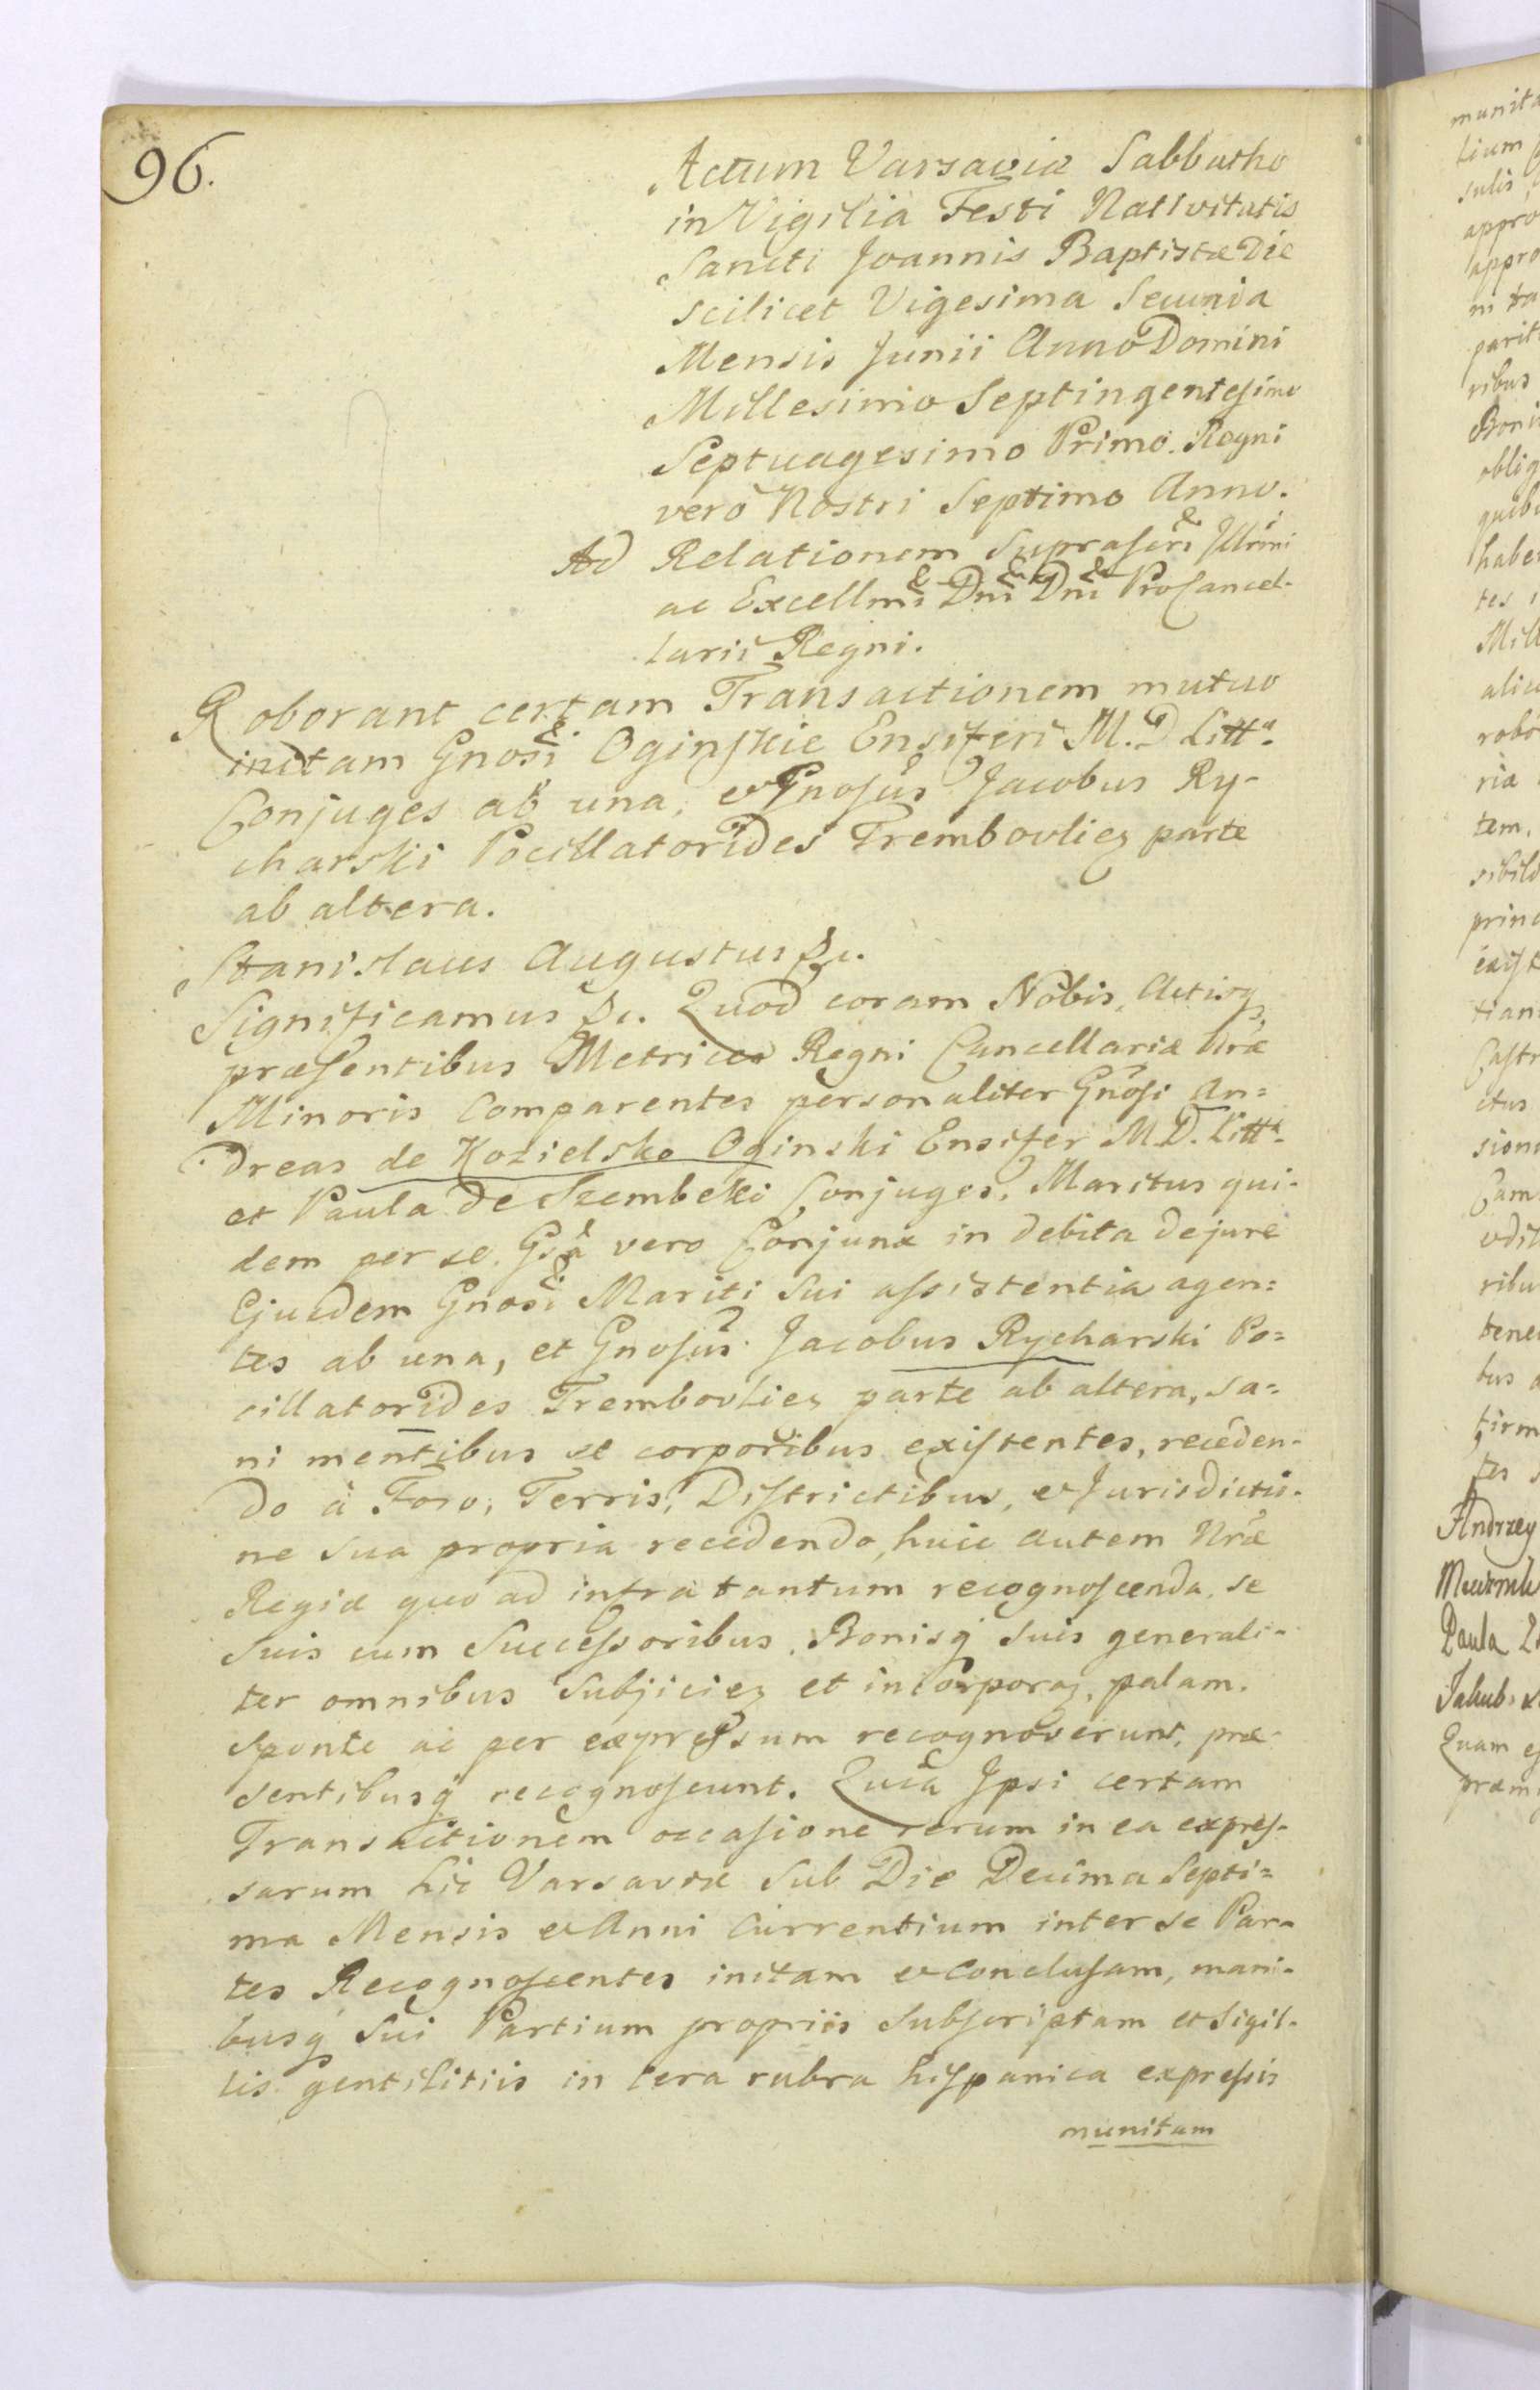 96.
Actum Varsaviæ Sabbatho
in Vigilia Festi Nativitatis
Sancti Joannis Baptistæ Die
scilicet Vigesima Secunda
Mensis Junii Anno Domini
Millesimo Septingentesimo
Septuagesimo Primo. Regni
verò Nostri Septimo Anno.
Ad Relationem Suprascri Illrmi
ac Excellmi Dni Dni ProCancel-
larii Regni.
Roborant certam Transactionem mutuo
initam Gnosi Oginskie Ensiferi M.D. Litt.
Conjuges ab una, et Gnosus Jacobus Ry-
charski Pocillatorides Trembovlien parte
ab altera.
Stanislaus Augustus &c.
Significamus &c. Quod coram Nobis, Actisq
præsentibus Metrices Regni Cancellariæ Nræ
Minoris Comparentes personaliter Gnosi An=
dreas de Kozielsko Oginski Ensifer M.D. Litt.
et Paula de Szembeki Conjuges, Maritus qui-
dem per se. Gsa vero Conjunx in debita de jure
Ejusdem Gnosi Mariti sui assistentia agen=
tes ab una, et Gnosus Jacobus Rycharski Po=
cillatorides Trembovlien parte ab altera, sa=
ni mentibus et corporibus existentes, receden-
do à Foro, Terris, Districtibus, et Jurisdictio-
ne sua propria recedendo, huic autem Nræ
Regiæ quo ad infra tantum recognoscenda, se
suis cum Successoribus, Bonisq suis generali-
ter omnibus Subjicien et incorporan, palam.
sponte ac per expressum recognoverunt, præ-
sentibusq recognoscunt. Quia Ipsi certam
Transactionem occasione rerum in ea expres-
sarum hic Varsaviæ sub Die Decima Septi=
ma Mensis et Anni Currentium inter se Par-
tes Recognoscentes initam et conclusam, mani-
busq sui Partium propriis Subscriptam et Sigil-
lis gentilitiis in cera rubra hispanica expressis
munitam
munita
tium
sulis
appro
appro
parit
ribus
oblig
habe
tes
Mill
robo
riæ
tem,
sibild
Castr
ctus
ribu
tene
bus
firm
tes
Andrzey
Paula
Jakub
Quam